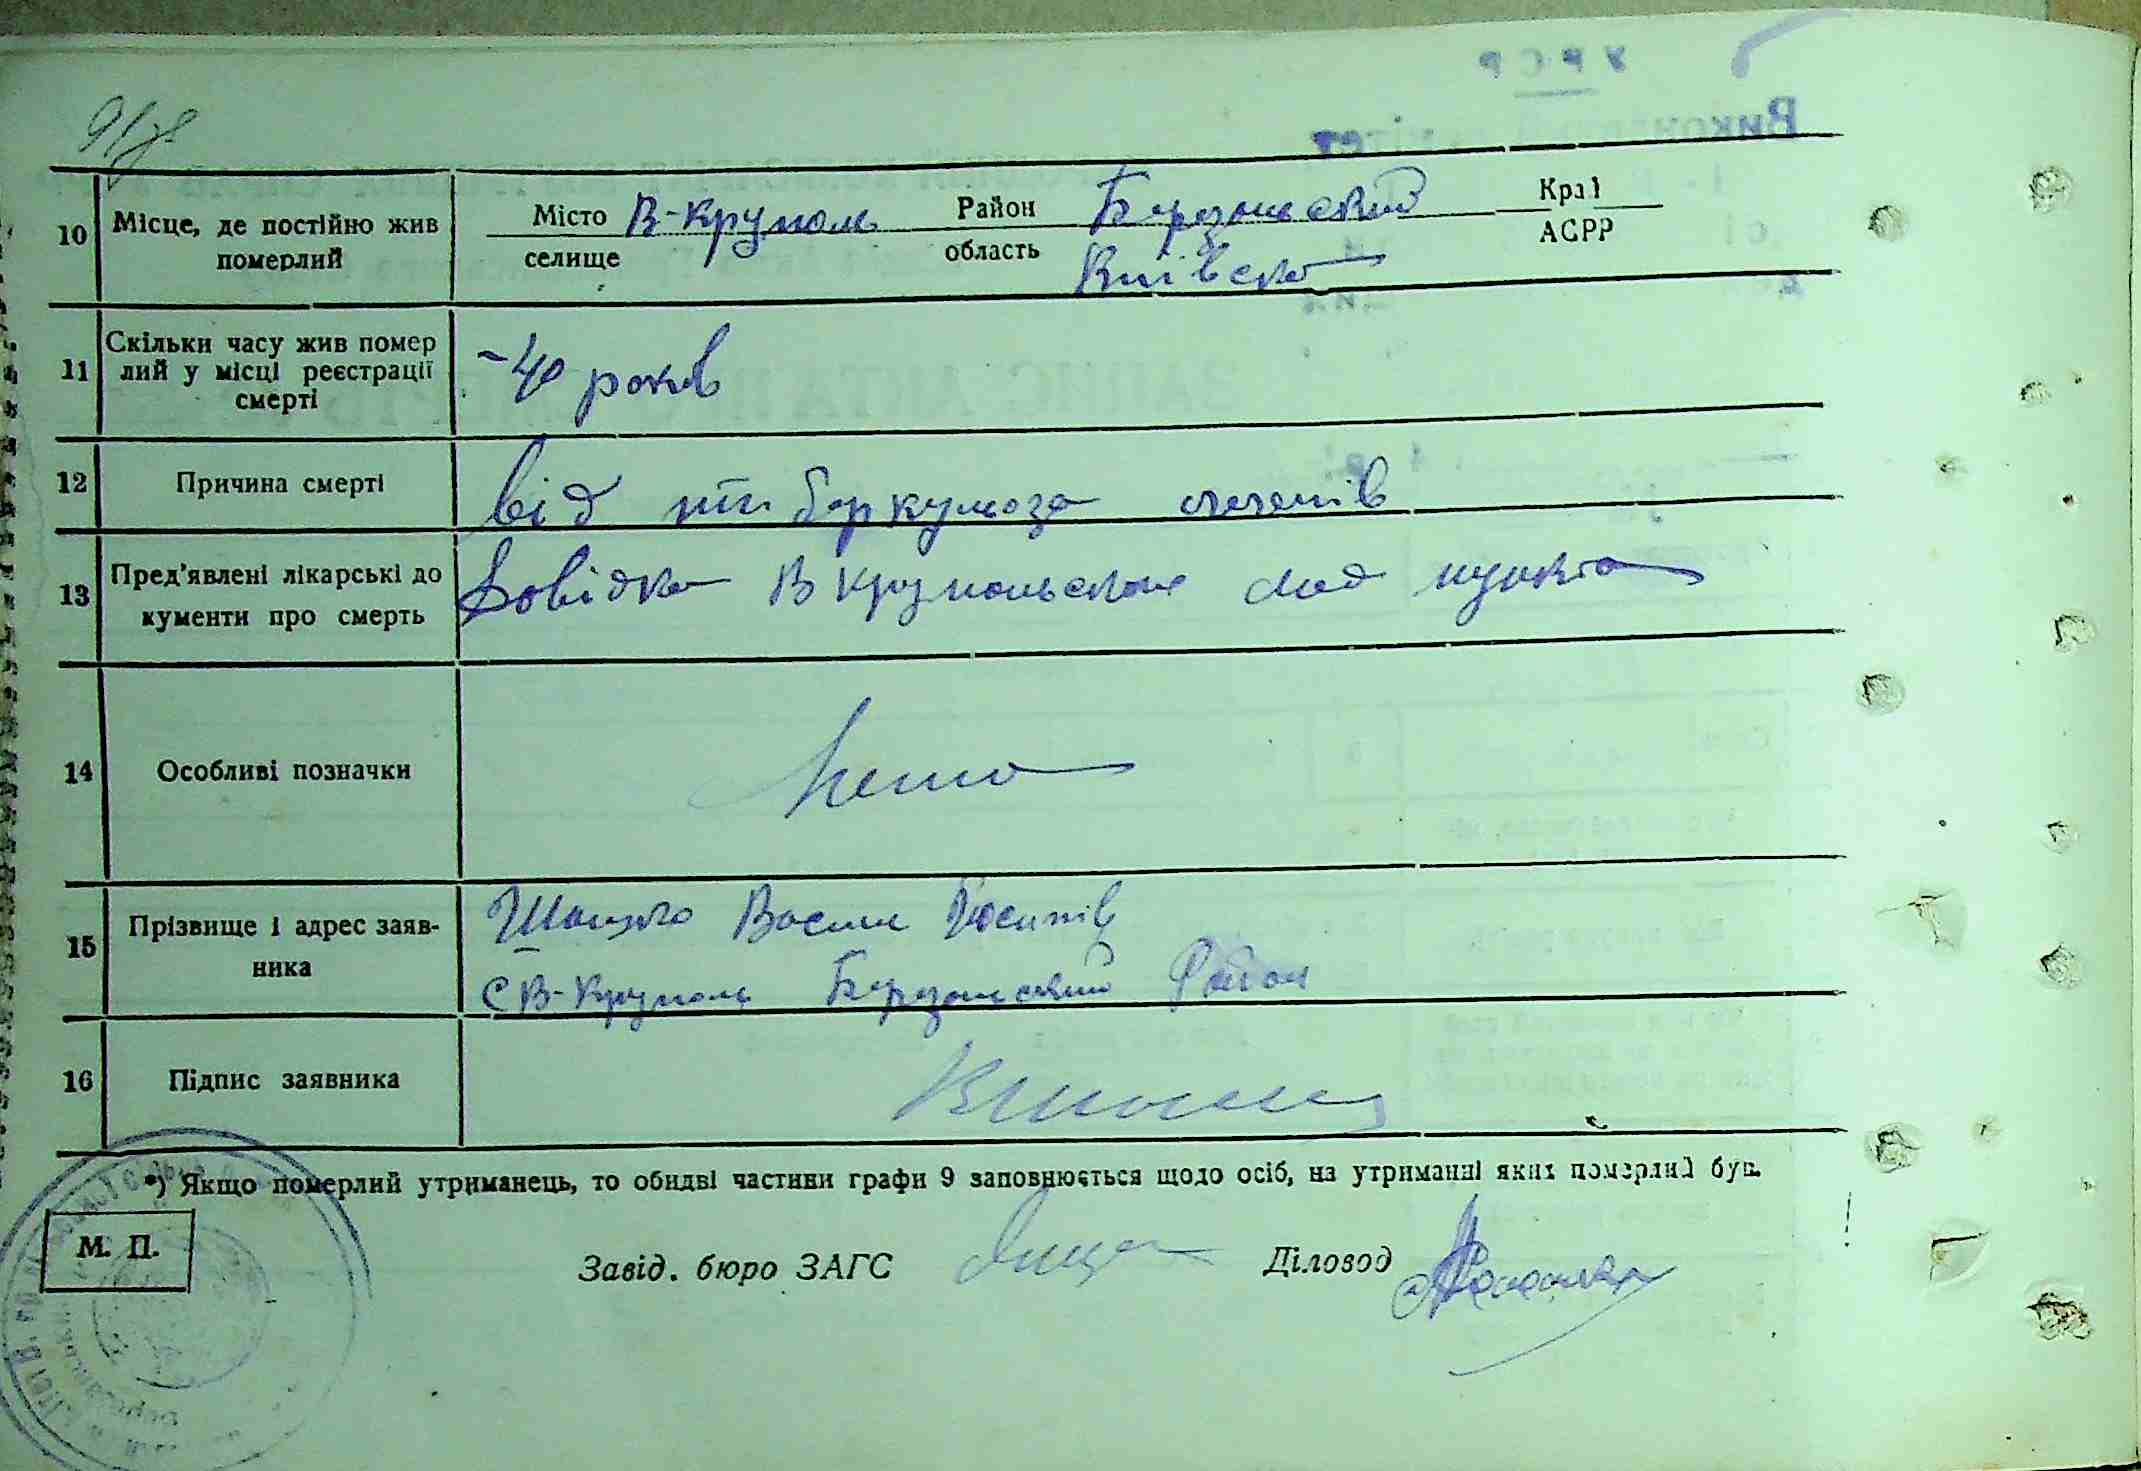 10 Місце, де постійно жив померлий
Місто В-Круполь Район Березанський Краї
селище область Київська АСРР
11 Скільки часу жив помер
лий у місці реєстрації
смерті
40 років
12 Причина смерті
від туберкульоза
13 Пред'явлені лікарські до
кументи про смерть
Довідка В Крупольського мед пункта
14 Особливі позначки
15 Прізвище і адрес заяв-
ника
Василь Йосипів
с В-Круполь Березанський Район
16 Підпис заявника
*) Якщо померлий утриманець, то обидві частини графи 9 заповнюється щодо осіб, на утриманні яких померлий був.
М. П.
Завід. бюро ЗАГС Діловод